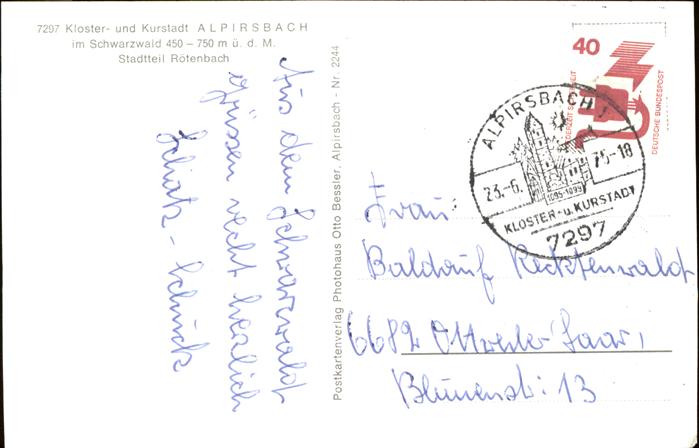 7297 Kloster- und Kurstadt ALPIRSBACH
im Schwarzwald 450 – 750 m ü. d. M.
Stadtteil Rötenbach
Aus dem Schwarzwald
grüssen recht herzlich
Schück
Postkartenverlag Photohaus Otto Bessler, Alpirsbach - Nr. 2244
40
DEUTSCHE BUNDESPOST
ALPIRSBACH 1
23.-6. 75-18
1095-1995
KLOSTER- u. KURSTADT
7297
Frau
Baldauf Recktenwald
6682 Ottweiler Saar,
Blumenstr. 13